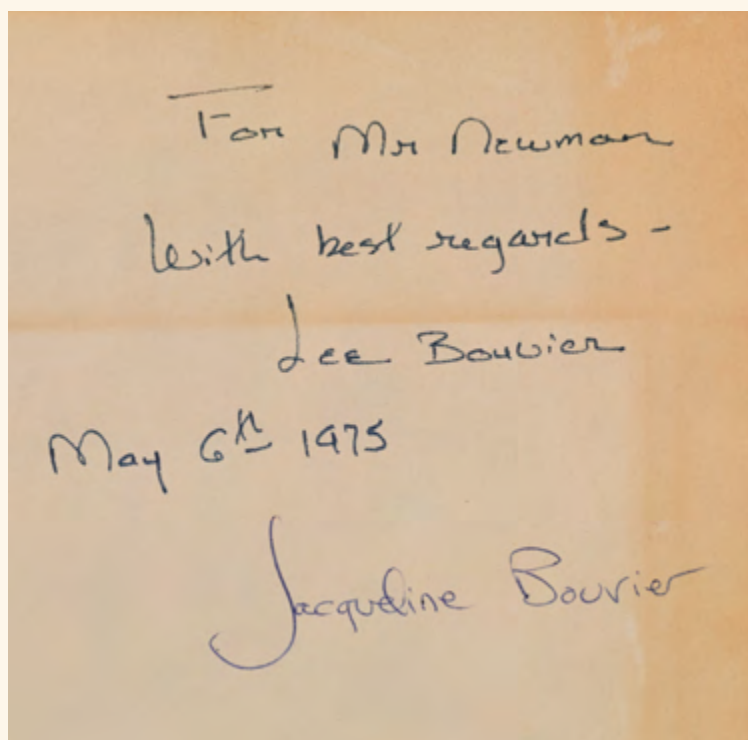 For Mr Newman
With best regards -
Lee Bouvier
May 6th 1975
Jacqueline Bouvier